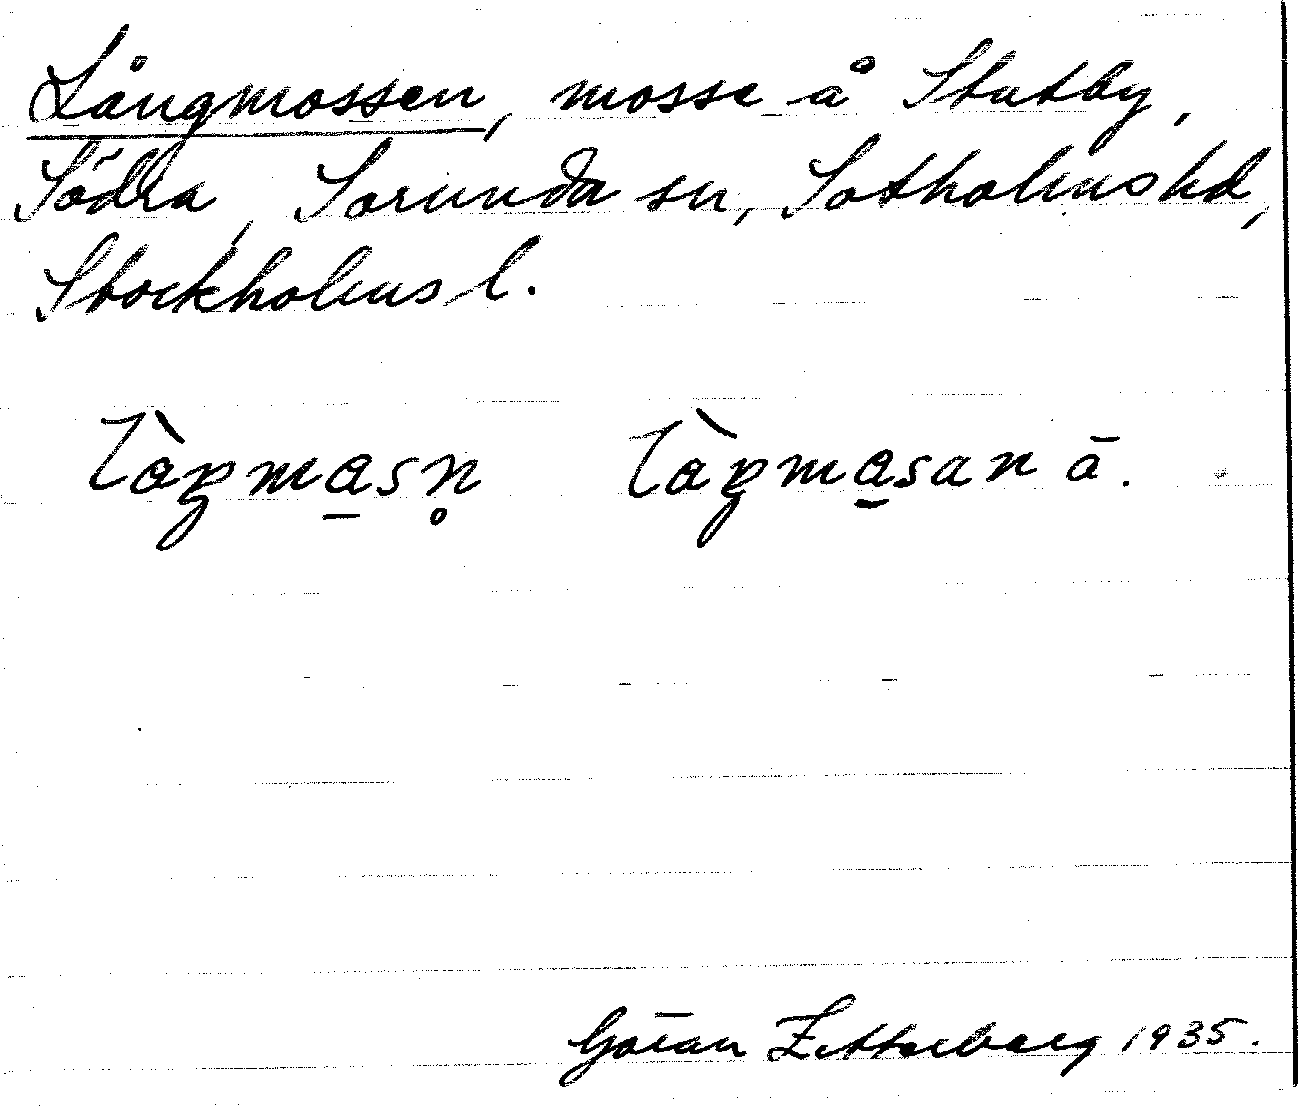 Långmossen, mosse å Stutby,
Södra, Sorunda sn, Sotholms hd,
Stockholms l.
làŋma̲sn̥ làŋma̲san ā.
Göran Zetterberg 1935.